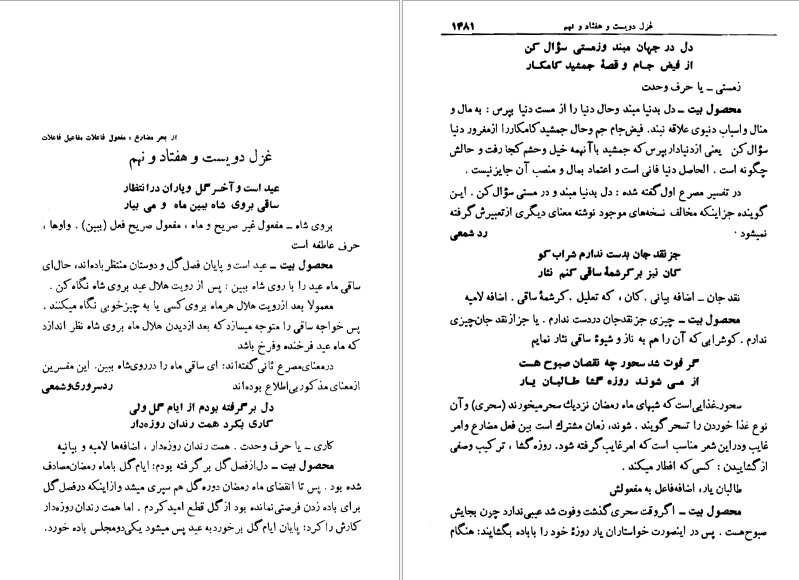 از بحر مضارع : مفعول فاعلات مفاعیل فاعلات
غزل دویست و هفتاد و نهم
عید است و آخر گل و یاران در انتظار
ساقی بروی شاه ببین ماه و می بیار
بروی شاه ـ مفعول غیر صریح و ماه ، مفعول صریح فعل (ببین) . واوها ،
حرف عاطفه است
محصول بیت ـ عید است و پایان فصل گل و دوستان منتظر باده‌اند، حال‌ای
ساقی ماه عید را با روی شاه ببین : پس از رویت هلال عید بروی شاه نگاه کن .
معمولا بعد از رویت هلال هر ماه بروی کسی یا به چیز خوبی نگاه میکنند .
پس خواجه ساقی را متوجه میسازد که بعد از دیدن هلال ماه بروی شاه نظر اندازد
که ماه عید فرخنده و فرخ باشد
در معنای مصرع ثانی گفته‌اند: ای ساقی ماه را در روی شاه ببین. این مفسرین
از معنای مذکور بی‌اطلاع بوده‌اند رد سروری و شمعی
دل برگرفته بودم از ایام گل ولی
کاری بکرد همت رندان روزه‌دار
کاری ـ یا حرف وحدت . همت رندان روزه‌دار ، اضافه‌ها لامیه و بیانیه
محصول بیت ـ دل از فصل گل بر گرفته بودم: ایام گل با ماه رمضان مصادف
شده بود . پس تا انقضای ماه رمضان دوره گل هم سپری میشد و از اینکه در فصل گل
برای باده زدن فرصتی نمانده بود از گل قطع امید کردم . اما همت رندان روزه‌دار
کارش را کرد: پایان ایام گل برخورد به عید پس میشود یکی دو مجلس باده خورد.
غزل دویست و هفتاد و نهم ۱۴۸۱
دل در جهان مبند و زمستی سؤال کن
از فیض جام و قصهٔ جمشید کامکار
زمستی ـ یا حرف وحدت
محصول بیت ـ دل بدنیا مبند و حال دنیا را از مست دنیا بپرس : به مال و
منال و اسباب دنیوی علاقه نبند. فیض جام جم و حال جمشید کامکار را از مغرور دنیا
سؤال کن یعنی از دنیادار بپرس که جمشید با آنهمه خیل و حشم کجا رفت و حالش
چگونه است . الحاصل دنیا فانی است و اعتماد بمال و منصب آن جایز نیست .
در تفسیر مصرع اول گفته شده : دل بدنیا مبند و در مستی سؤال کن . این
گوینده جز اینکه مخالف نسخه‌های موجود نوشته معنای دیگری از تعبیرش گرفته
نمیشود . رد شمعی
جز نقد جان بدست ندارم شراب کو
کان نیز بر کرشمهٔ ساقی کنم نثار
نقد جان ـ اضافه بیانی . کان ، که تعلیل . کرشمهٔ ساقی . اضافه لامیه
محصول بیت ـ چیزی جز نقد جان در دست ندارم . یا جز از نقد جان چیزی
ندارم . کو شرابی که آن را هم به ناز و شیوهٔ ساقی نثار نمایم
گر فوت شد سحور چه نقصان صبوح هست
از می شوند روزه گشا طالبان یار
سحور ـ غذایی است که شبهای ماه رمضان نزدیك سحر میخورند (سحری) و آن
نوع غذا خوردن را تسحر گویند . شوند، زمان مشترك است بین فعل مضارع و امر
غایب و در این شعر مناسب است که امر غایب گرفته شود. روزه گشا ، ترکیب وصفی
از گشاییدن : کسی که افطار میکند .
طالبان یار، اضافه فاعل به مفعولش
محصول بیت ـ اگر وقت سحری گذشت و فوت شد عیبی ندارد چرن بجایش
صبوح هست . پس در اینصورت خواستاران یار روزهٔ خود را با باده بگشایند: هنگام